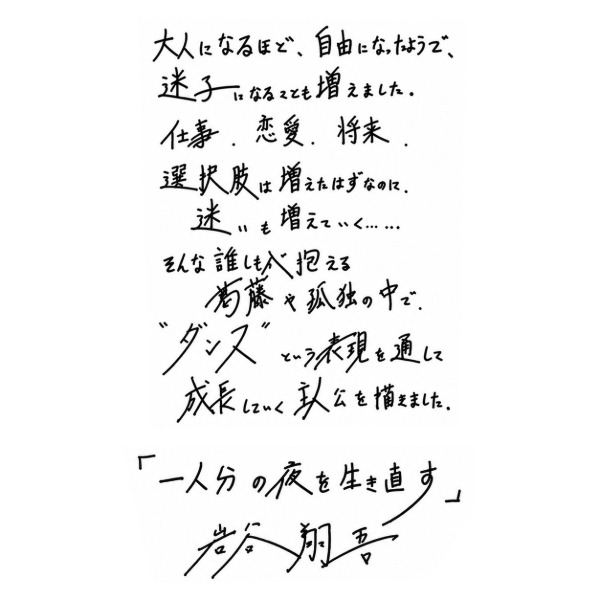 大人になるほど、自由になったようで、
迷子になることも増えました。
仕事、恋愛、将来、
選択肢は増えたはずなのに、
迷いも増えていく……
そんな誰しもが抱える
葛藤や孤独の中で、
"ダンス"という表現を通して
成長していく主人公を描きました。
「一人分の夜を生き直す」
岩谷翔吾